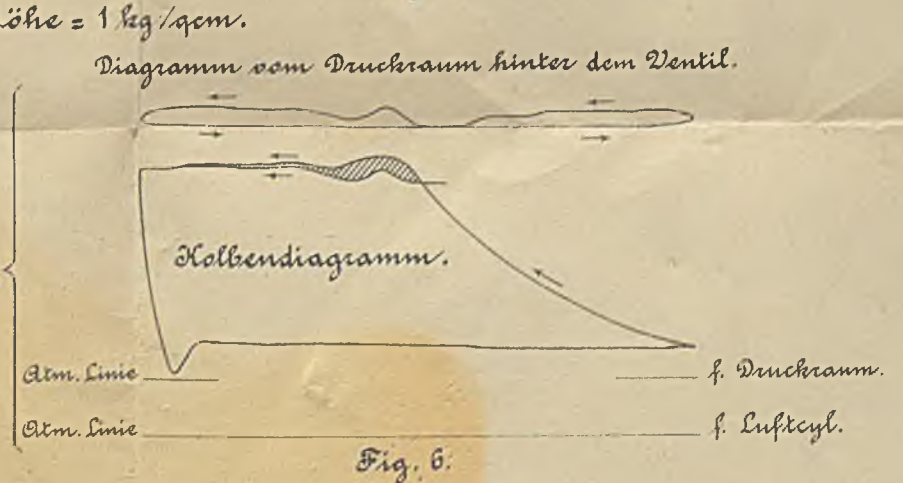 öhe = 1 kg/qcm.
Diagramm vom Druckraum hinter dem Ventil.
Kolbendiagramm.
Atm. Linie f. Druckraum.
Atm. Linie f. Luftcyl.
Fig. 6.